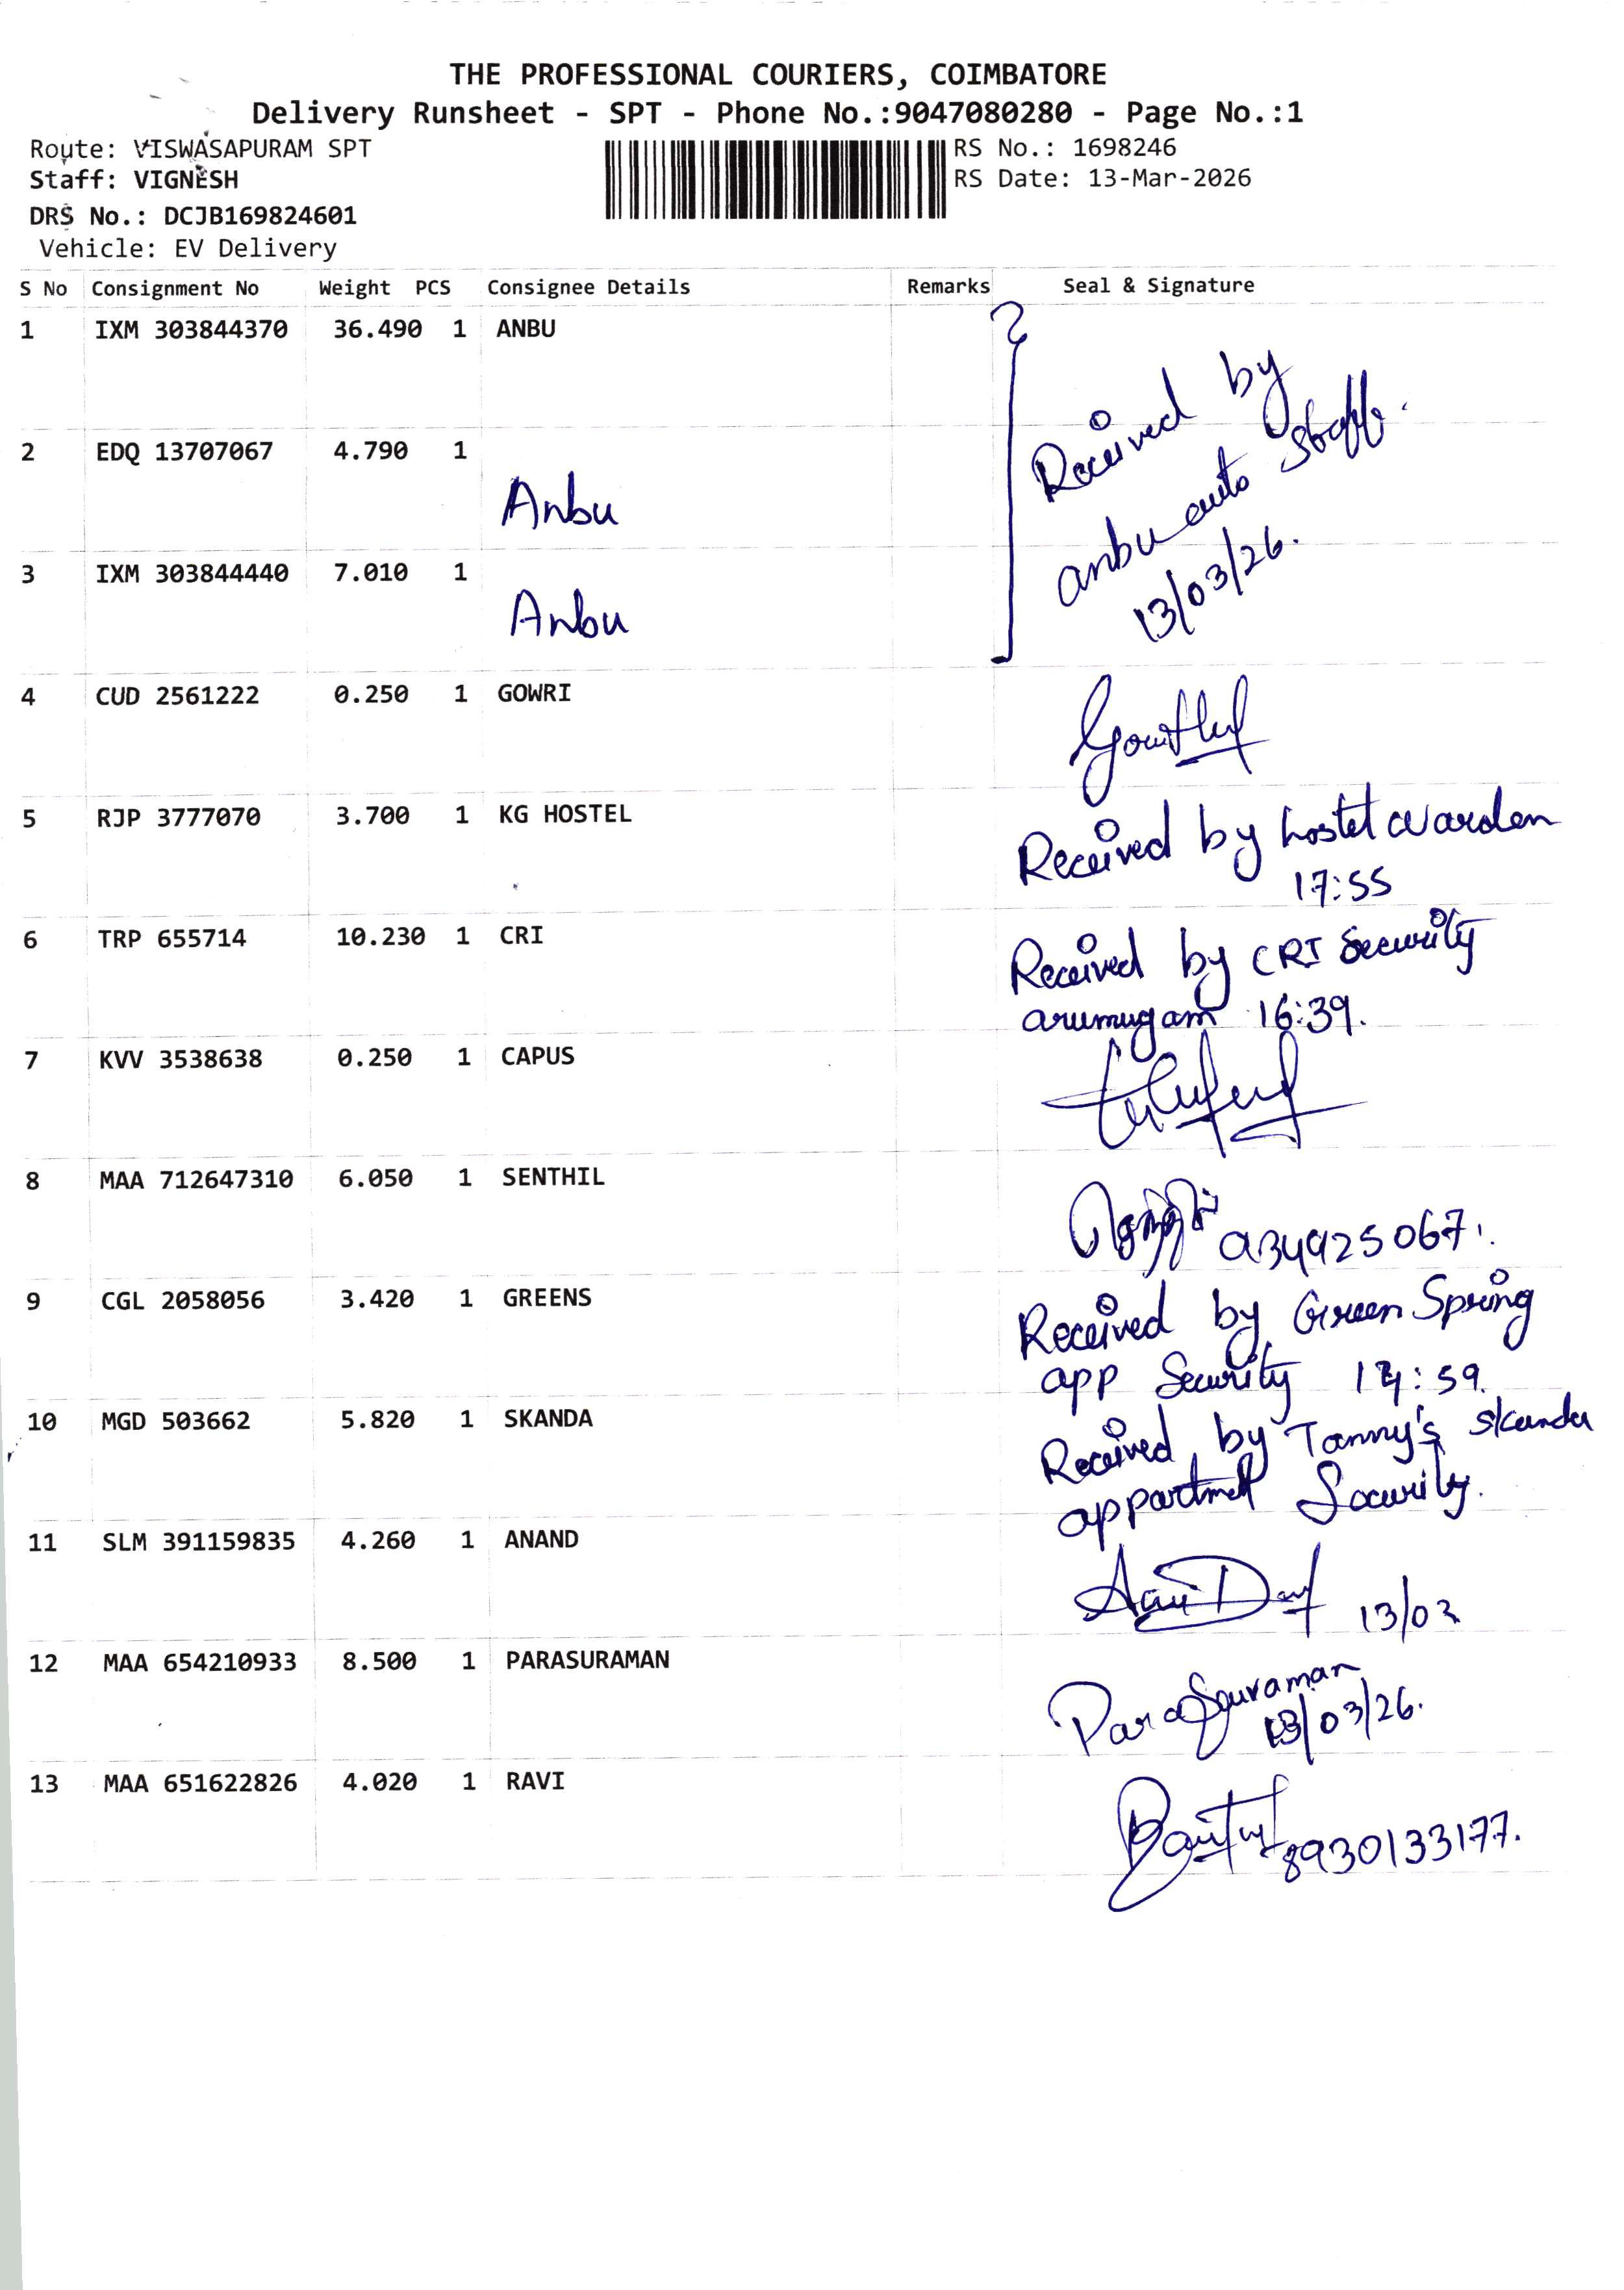 THE PROFESSIONAL COURIERS, COIMBATORE
Delivery Runsheet - SPT - Phone No.:9047080280 - Page No.:1
Route: VISWASAPURAM SPT
Staff: VIGNESH
DRS No.: DCJB169824601
Vehicle: EV Delivery
RS No.: 1698246
RS Date: 13-Mar-2026
S No Consignment No Weight PCS Consignee Details Remarks Seal & Signature
1 IXM 303844370 36.490 1 ANBU
2 EDQ 13707067 4.790 1 Anbu
3 IXM 303844440 7.010 1 Anbu
Received by
anbu auto staff.
13/03/26.
4 CUD 2561222 0.250 1 GOWRI
5 RJP 3777070 3.700 1 KG HOSTEL
Received by hostel warden
17:55
6 TRP 655714 10.230 1 CRI
Received by CRI Security
arumugam 16:39.
7 KVV 3538638 0.250 1 CAPUS
8 MAA 712647310 6.050 1 SENTHIL
9 CGL 2058056 3.420 1 GREENS
Received by Green Spring
app Security
10 MGD 503662 5.820 1 SKANDA
Received by Tammy's Skanda
appartmet Security.
11 SLM 391159835 4.260 1 ANAND
13/03
12 MAA 654210933 8.500 1 PARASURAMAN
Parasuraman
13/03/26.
13 MAA 651622826 4.020 1 RAVI
8930133177.